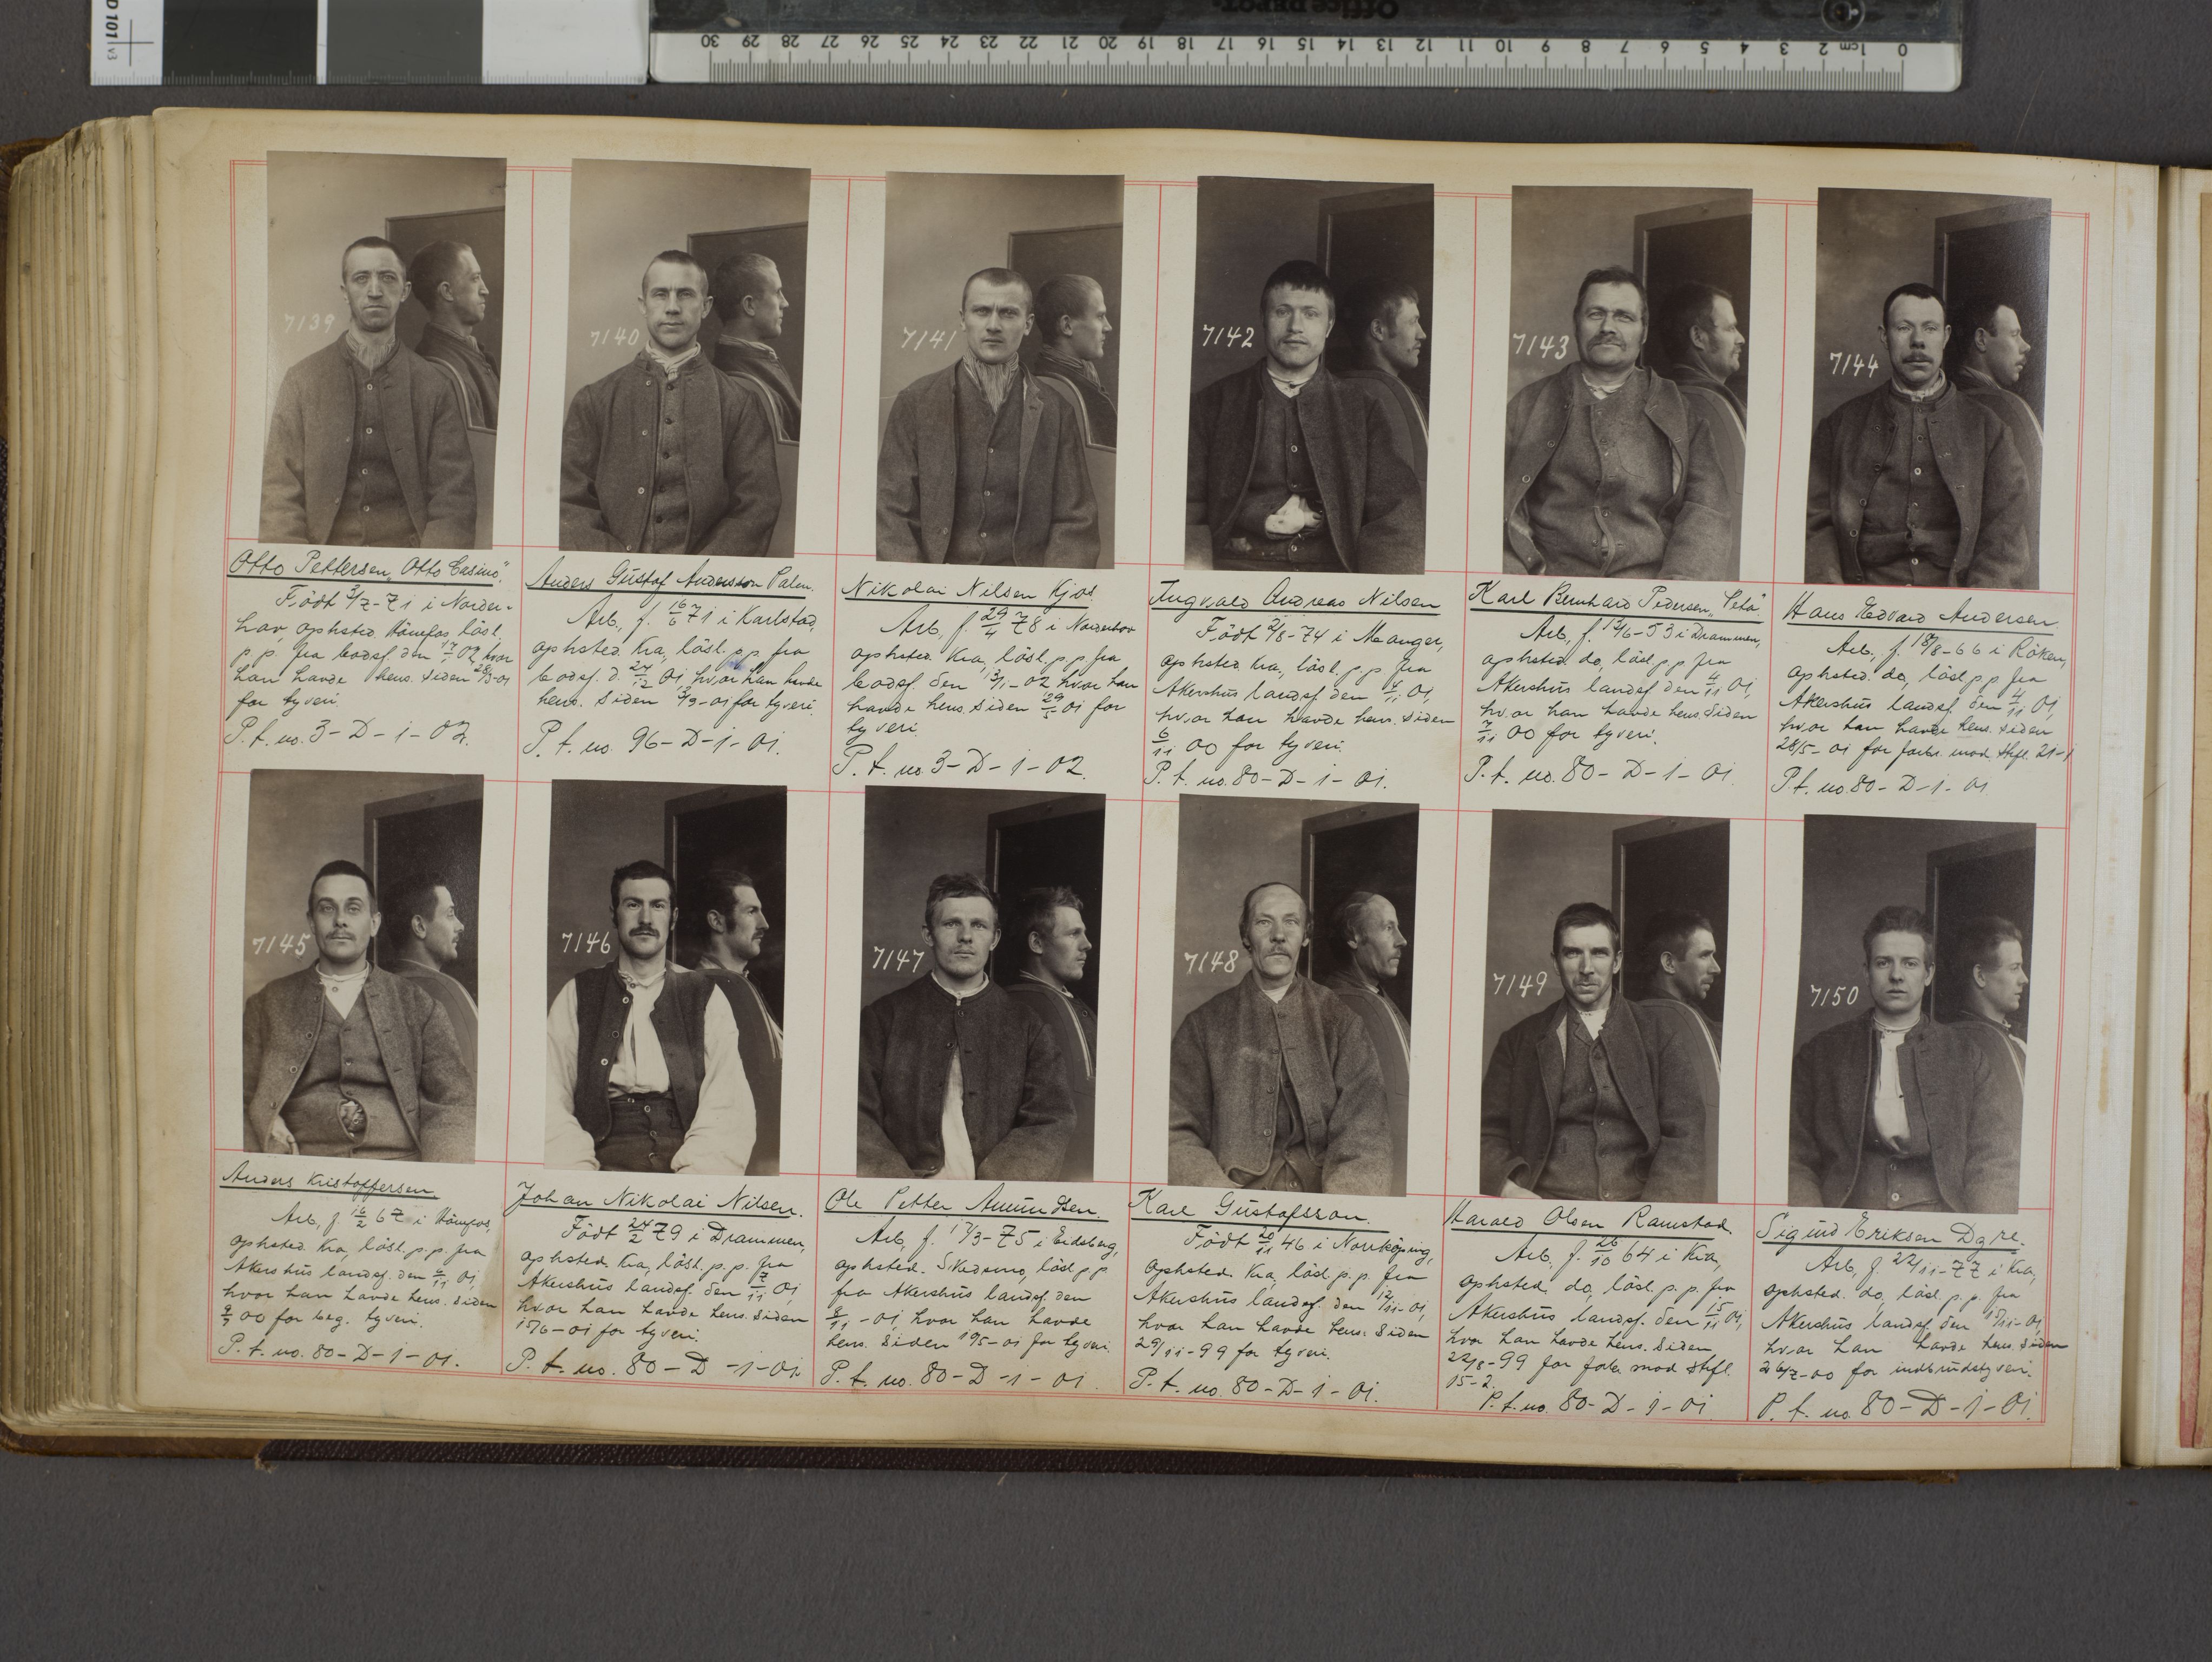 D 101 v3
Office DEPOT.
30 29 28 27 26 25 24 23 22 21 20 19 18 17 16 15 14 13 12 11 10 9 8 7 6 5 4 3 2 1cm 0
7139
Otto Pettersen, "Otto Casino".
Födt 3/7-71 i Norder-
hov, ophsted. Hönefos, lösl.
p. p. fra bodsf. den 17/1 02, hvor
han havde hens. siden 28/3-01
for tyveri.
P. t. no. 3-D-1-02.
7140
Anders Gustaf Andersson Palm.
Arb., f. 16/6 71 i Karlstad,
ophsted. Kra, lösl. p.p. fra
bodsf. d. 24/12 01, hvor han havde
hens. siden 13/9-01 for tyveri.
P. t. no. 96-D-1-01.
7141
Nikolai Nilsen Kjos.
Arb., f. 29/4 78 i Norderhov
ophsted. Kra, lösl. p.p. fra
bodsf. den 3/1-02 hvor han
havde hens. siden 29/5 01 for
tyveri.
P. t. no 3-D-1-02.
7142
Ingvald Andreas Nilsen
Födt 2/8-74 i Manger,
ophsted. Kra, lösl. p.p. fra
Akershus landsf. den 4/11 01,
hvor han havde hens. siden
6/11 00 for tyveri.
P. t. no. 80-D-1-01.
7143
Karl Bernhard Pedersen, "Peta".
Arb., f. 13/6-53 i Drammen,
ophsted. do, lösl. p.p. fra
Akershus landsf. den 4/11 01,
hvor han havde hens. siden
7/11 00 for tyveri.
P. t. no. 80-D-1-01
7144
Hans Edvard Andersen
Arb., f. 18/8-66 i Röken,
ophsted. do, lösl. p.p. fra
Akershus landsf. den 4/11 01,
hvor han havde hens. siden
28/5-01 for forbr. mod. Stfl. 21-1
P. t. no. 80-D-1-01
7145
Anders Kristoffersen
Arb., f. 16/2 67 i Hönefos,
ophsted. Kra, lösl. p.p. fra
Akershus landsf. den 6/11 01,
hvor han havde hens. siden
00 for beg. tyveri.
P. t. no. 80-D-1-01.
7146
Johan Nikolai Nilsen.
Födt 24/2 79 i Drammen,
ophsted. Kra, lösl. p. p. fra
Akershus landsf. den 7/11 01,
hvor han havde hens. siden
15/6-01 for tyveri.
P. t. no. 80-D-1-01
7147
Ole Petter Amundsen.
Arb., f. 17/3-75 i Eidsberg,
ophsted. Skedsmo, lösl. p.p.
fra Akershus landsf. den
8/11-01, hvor han havde
hens. siden 19/5-01 for tyveri.
P. t. no. 80-D-1-01.
7148
Karl Gustafsson.
Födt 20/11 46 i Norrköping,
ophsted. Kra, lösl. p.p. fra
Akershus landsf. den 12/11-01,
hvor han havde hens. siden
29/11-99 for tyveri.
P. t. no. 80-D-1-01.
7149
Harald Olsen Ramstad.
Arb., f. 26/10 64 i Kra,
ophsted. do, lösl. p.p. fra
Akershus landsf. den 15/11 01,
hvor han havde hens. siden
22/8-99 for forb. mod stfl.
15-2.
P. t. no. 80-D-1-01.
7150
Sigurd Eriksen Dgre.
Arb., f. 22/11-77 i Kra,
ophsted. do, lösl. p.p. fra
Akershus landsf. den 15/11-01,
hvor han havde hens. siden
26/7-00 for indbrudstyveri.
P. t. no. 80-D-1-01.